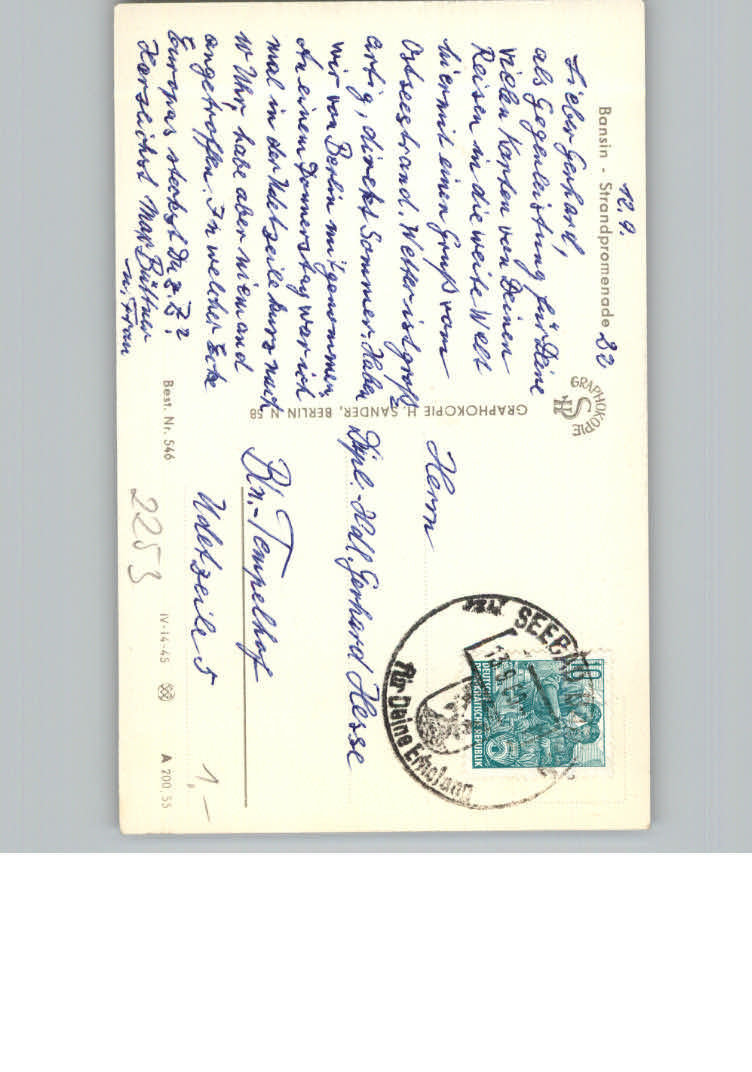 Bansin - Strandpromenade
12.9.
Lieber Gerhard,
als Gegenleistung für Deine
vielen Karten von Deinen
Reisen in die weite Welt
hiermit einen Gruß vom
Ostseestrand. Wetter ist groß-
artig, direkt Sommer. Haben
wir von Berlin mitgenommen.
An einem Donnerstag war ich
mal in der Udetzeile kurz nach
10 Uhr, habe aber niemand
angetroffen. In welcher Ecke
Europas steckst Du z. Z.?
Herzlichst Max Büttner
u. Frau
GRAPHOKOPIE
H S
GRAPHOKOPIE H. SANDER, BERLIN N 58
Best. Nr. 546
Herrn
Dipl.-Hdl. Gerhard Hesse
Bln.-Tempelhof
Udetzeile 5
2253
IV-14-45
A 200.55
1,-
SEEBAD
Für Deine Erholung
10
DEUTSCHE
DEMOKRATISCHE REPUBLIK